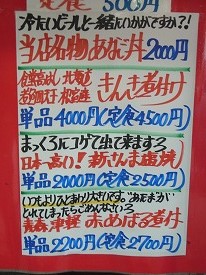 定食 500円
冷たいビールと一緒にいかがですか?!
当店名物 あなご丼 2000円
北海道
きんき煮付け
単品 4000円(定食4500円)
まっくろにコゲて出て来ます
日本一高い! 新さんま塩焼
単品 2000円(定食2500円)
いつもよりひとまわり大きいです。"あたま"が
とれてしまったらごめんなさい
青森 津軽 赤めばる煮付
単品 2200円(定食2700円)